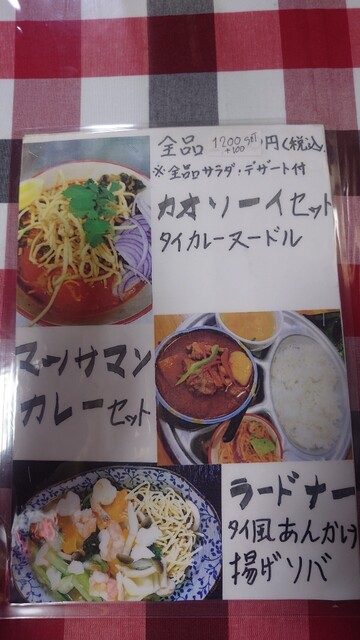 全品 1200 円(税込)
+100
※全品サラダ・デザート付
カオソーイセット
タイカレーヌードル
マッサマン
カレーセット
ラードナー
タイ風あんかけ
揚げソバ